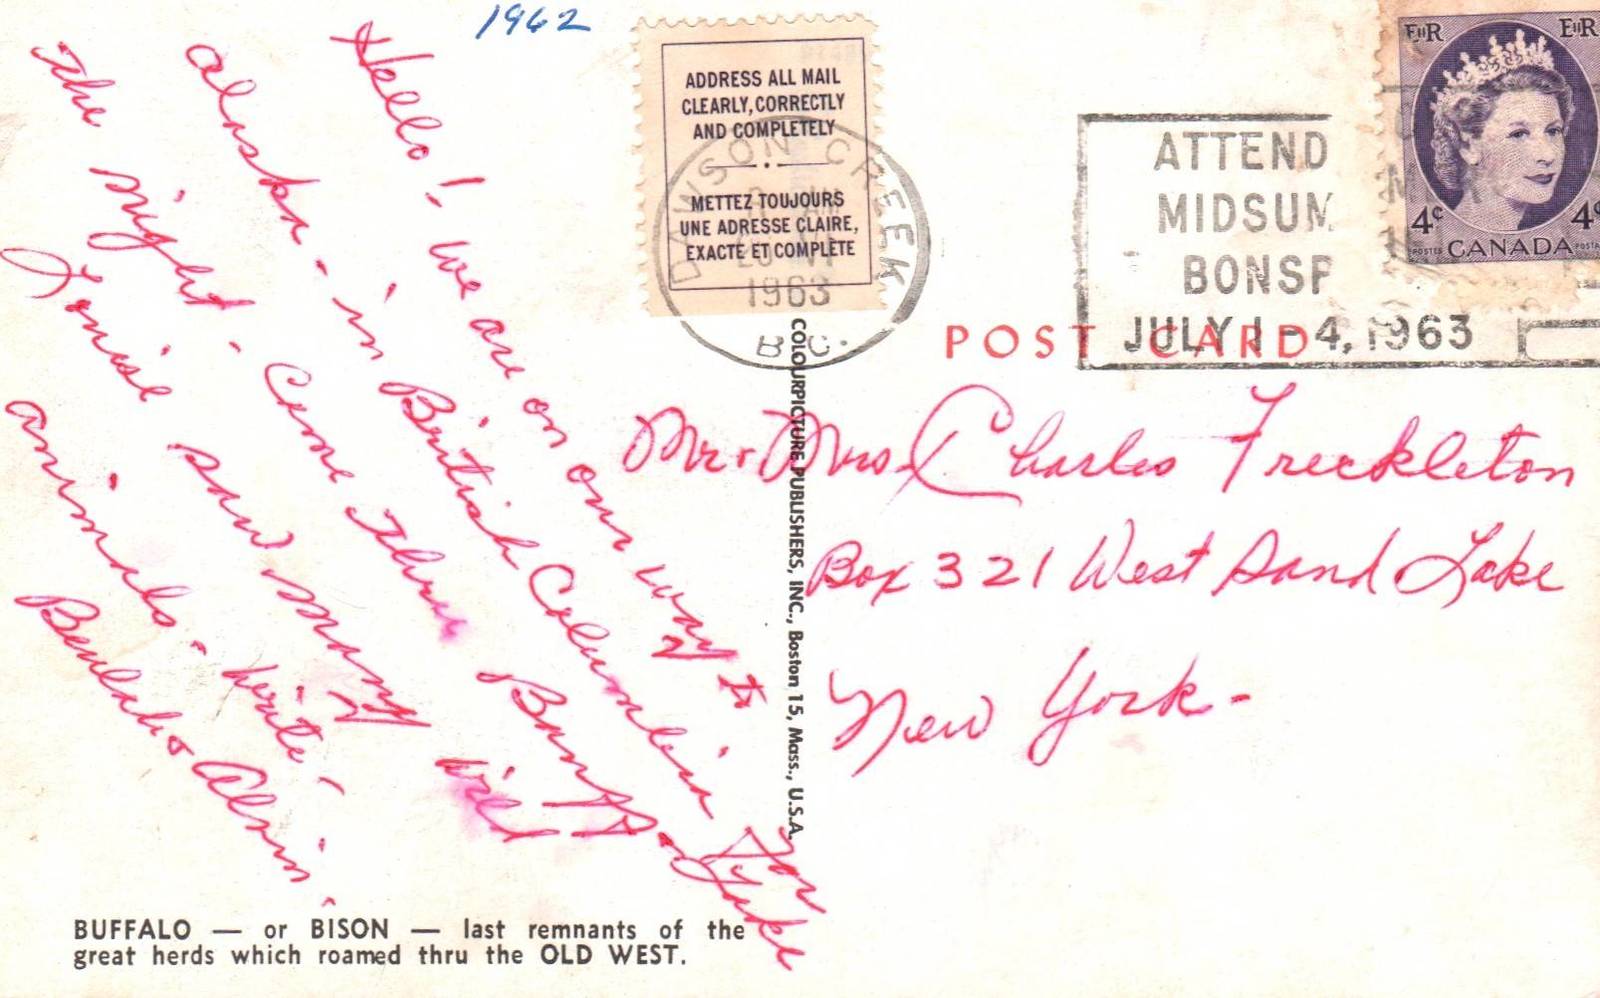 1962
Hello! We are on our way to
Alaska - in British Columbia for
the night. Came thru Banff & Lake
Louise saw many wild
animals. Write -
Beulah & Alvin.
BUFFALO — or BISON — last remnants of the
great herds which roamed thru the OLD WEST.
ADDRESS ALL MAIL
CLEARLY, CORRECTLY
AND COMPLETELY
METTEZ TOUJOURS
UNE ADRESSE CLAIRE,
EXACTE ET COMPLÈTE
DAWSON CREEK
1963
B.C.
COLOURPICTURE PUBLISHERS, INC., Boston 15, Mass., U.S.A.
ATTEND
MIDSUM
BONSP
JULY 1-4, 1963
EIIR EIIR
4c 4c
POSTES CANADA POSTAGE
POST CARD
Mr. & Mrs. Charles Freckleton
Box 321 West Sand Lake
New York -